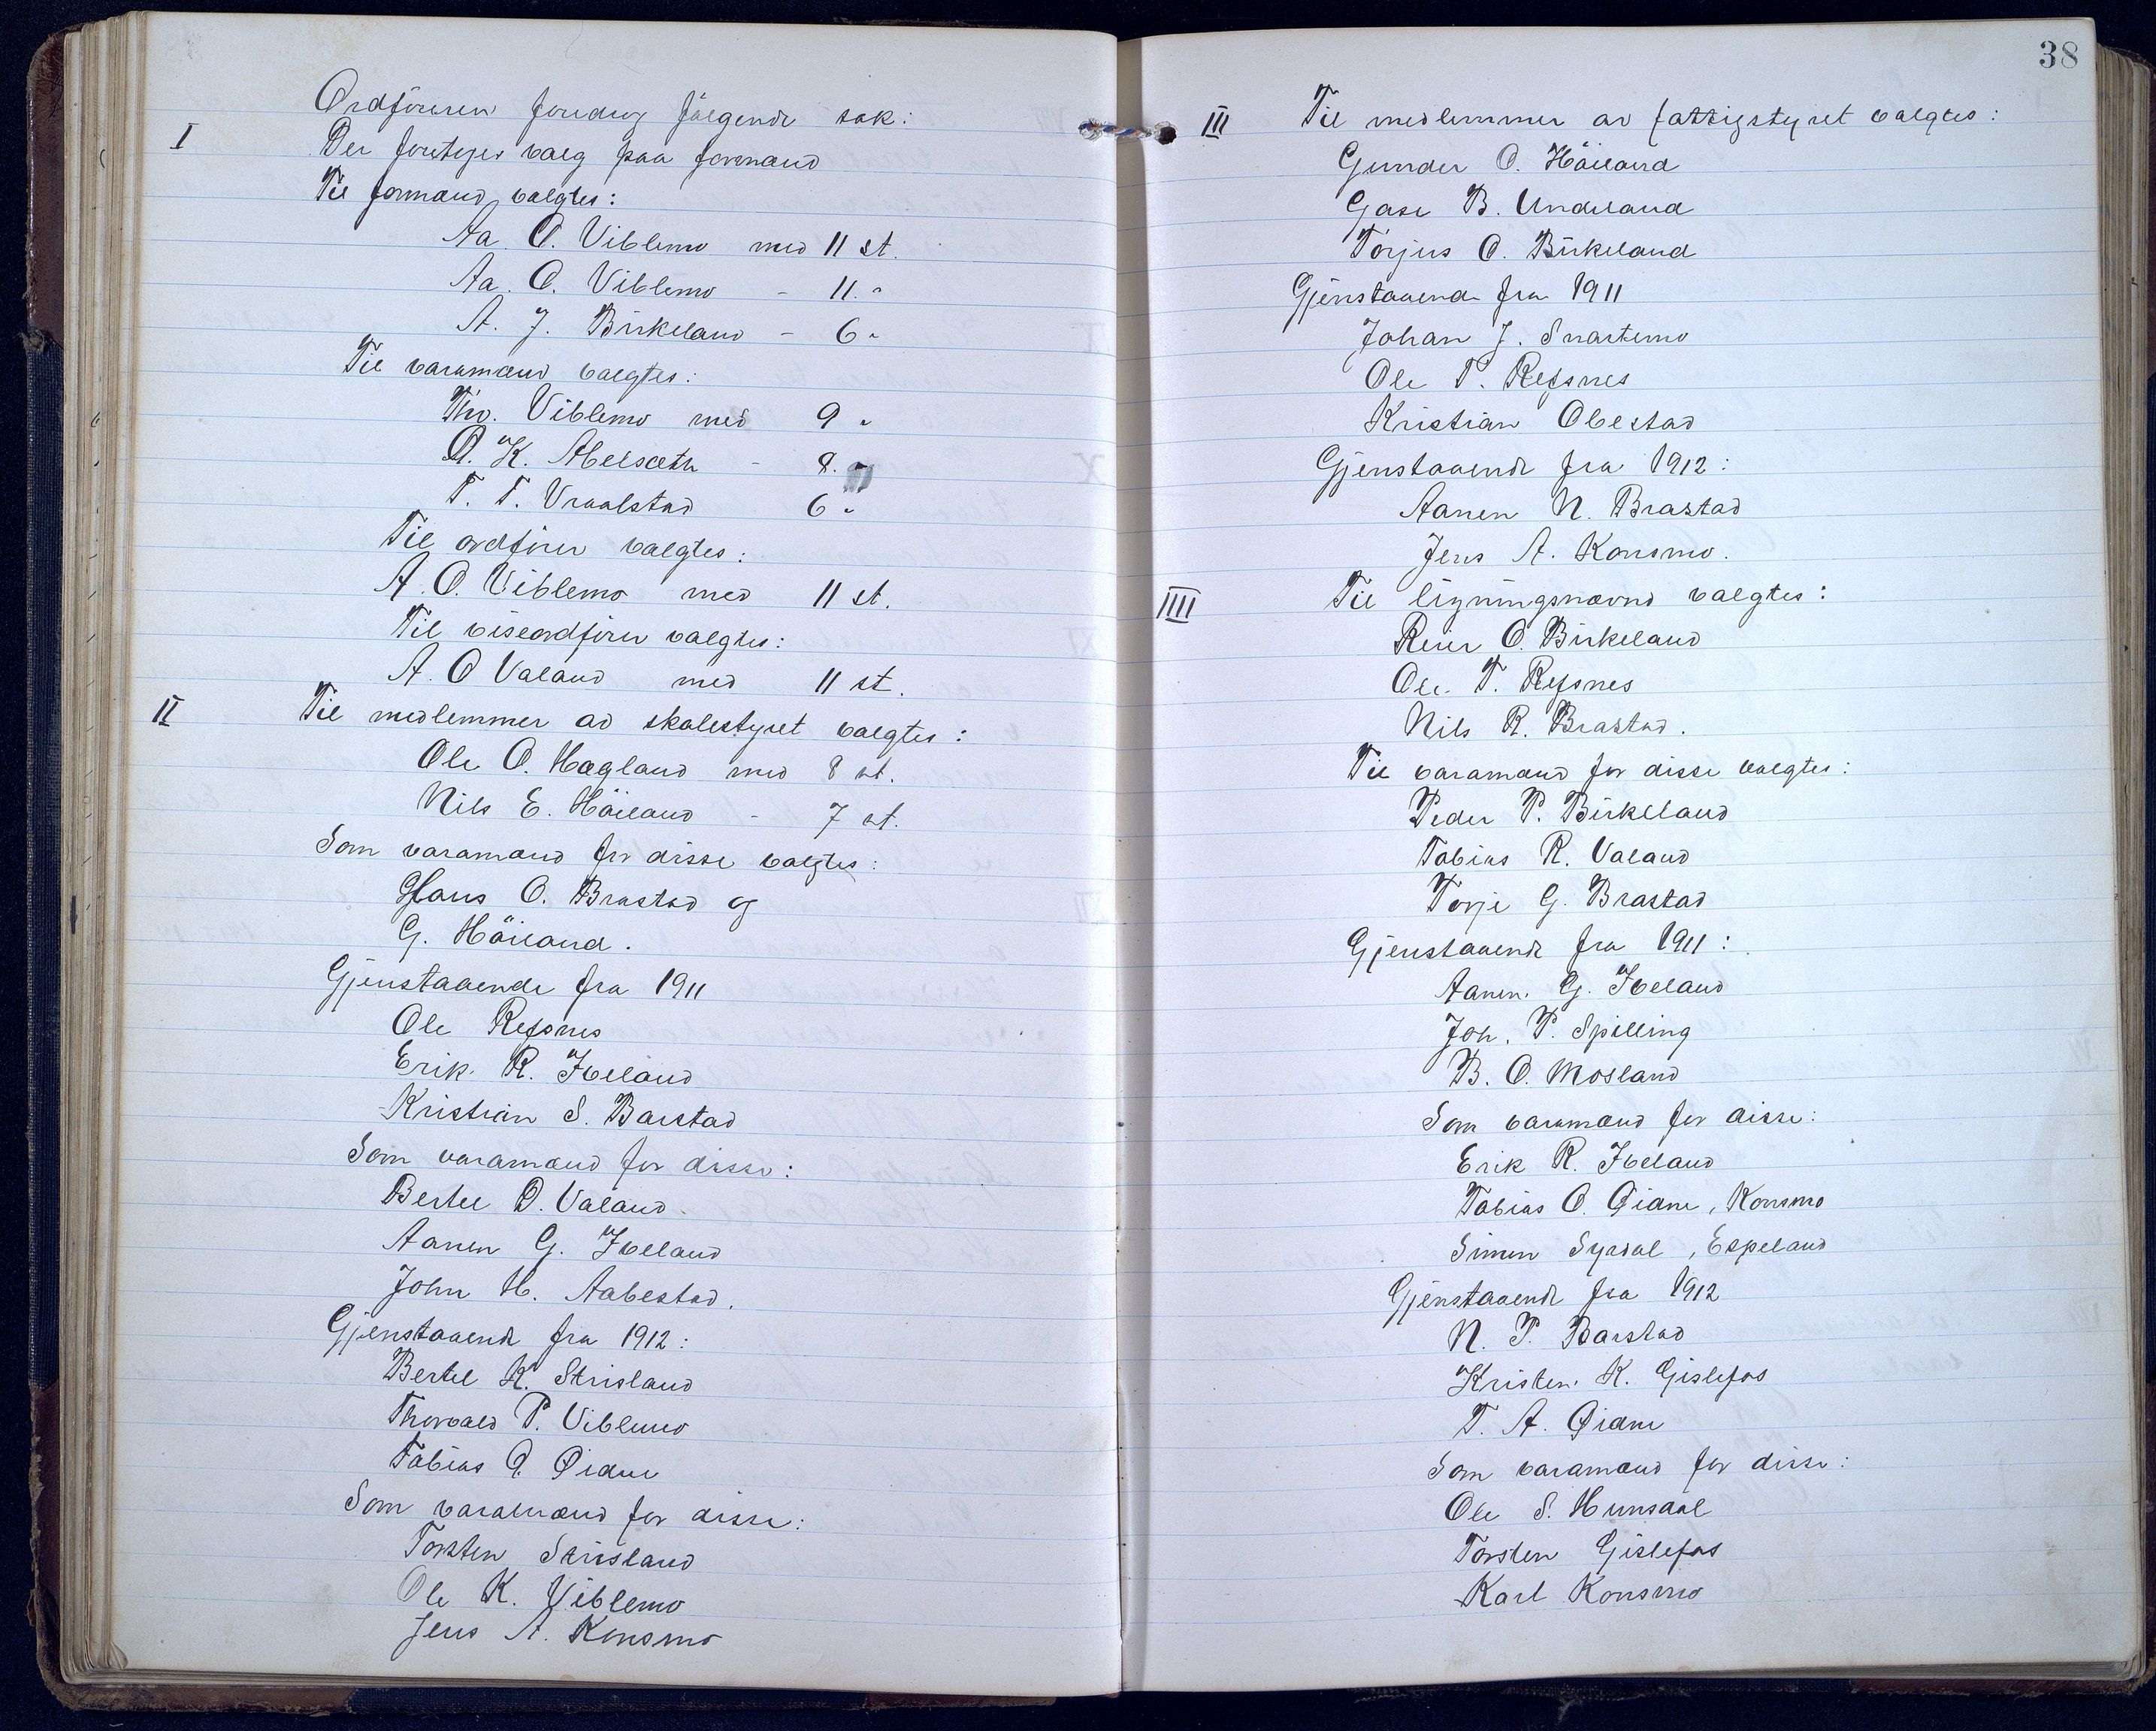 Ordføreren foredrog følgende sak:
I Der foretoges valg paa formænd
Til formænd valgtes:
Aa. O. Viblemo med 11 st.
Aa. O. Viblemo - 11. "
A. J. Birkeland - 6 "
Til varamænd valgtes:
Tho. Viblemo med 9 "
O. K. Abelsæth - 8. "
T. T. Vraalstad 6 "
Til ordfører valgtes:
A. O. Viblemo med 11 st.
Til viseordfører valgtes:
A. O Valand med 11 st.
II Til medlemmer av skolestyret valgtes:
Ole O. Hægland med 8 st.
Nils E. Höiland - 7 st.
Som varamænd for disse valgtes:
Hans O. Brastad og
G. Höiland.
Gjenstaaende fra 1911
Ole Refsnes
Erik R. Iveland
Kristian S. Barstad
Som varamænd for disse:
Bertel O. Valand
Aanen G. Iveland
John H. Aabestad.
Gjenstaaende fra 1912:
Bertel K. Strisland
Thorvald P. Viblemo
Tobias O. Øidne
Som varamænd for disse:
Torsten Strisland
Ole K. Viblemo
Jens A. Konsmo
38
III Til medlemmer av fattigstyret valgtes:
Gunder O. Höiland
Gase B. Undeland
Torjus O. Birkeland
Gjenstaaende fra 1911
Johan J. Snartemo
Ole T. Refsnes
Kristian Obestad
Gjenstaaende fra 1912:
Aanen N. Brastad
Jens A. Konsmo.
IIII Til ligningsnævnd valgtes:
Reier O. Birkeland
Ole. T. Refsnes
Nils R. Brastad.
Til varamænd for disse valgtes:
Peder P. Birkeland
Tobias R. Valand
Torje G. Brastad
Gjenstaaende fra 1911:
Aanen. G. Iveland
Joh. P. Spilling
B. O. Mosland
Som varamænd for disse:
Erik R. Iveland
Tobias O. Øidne, Konsmo
Simen Syrdal, Espeland
Gjenstaaende fra 1912
N. P. Barstad
Kristen. K. Gislefos
T. A. Øidne
Som varamænd for disse:
Ole S. Hunsdal
Torsten Gislefos
Karl Konsmo